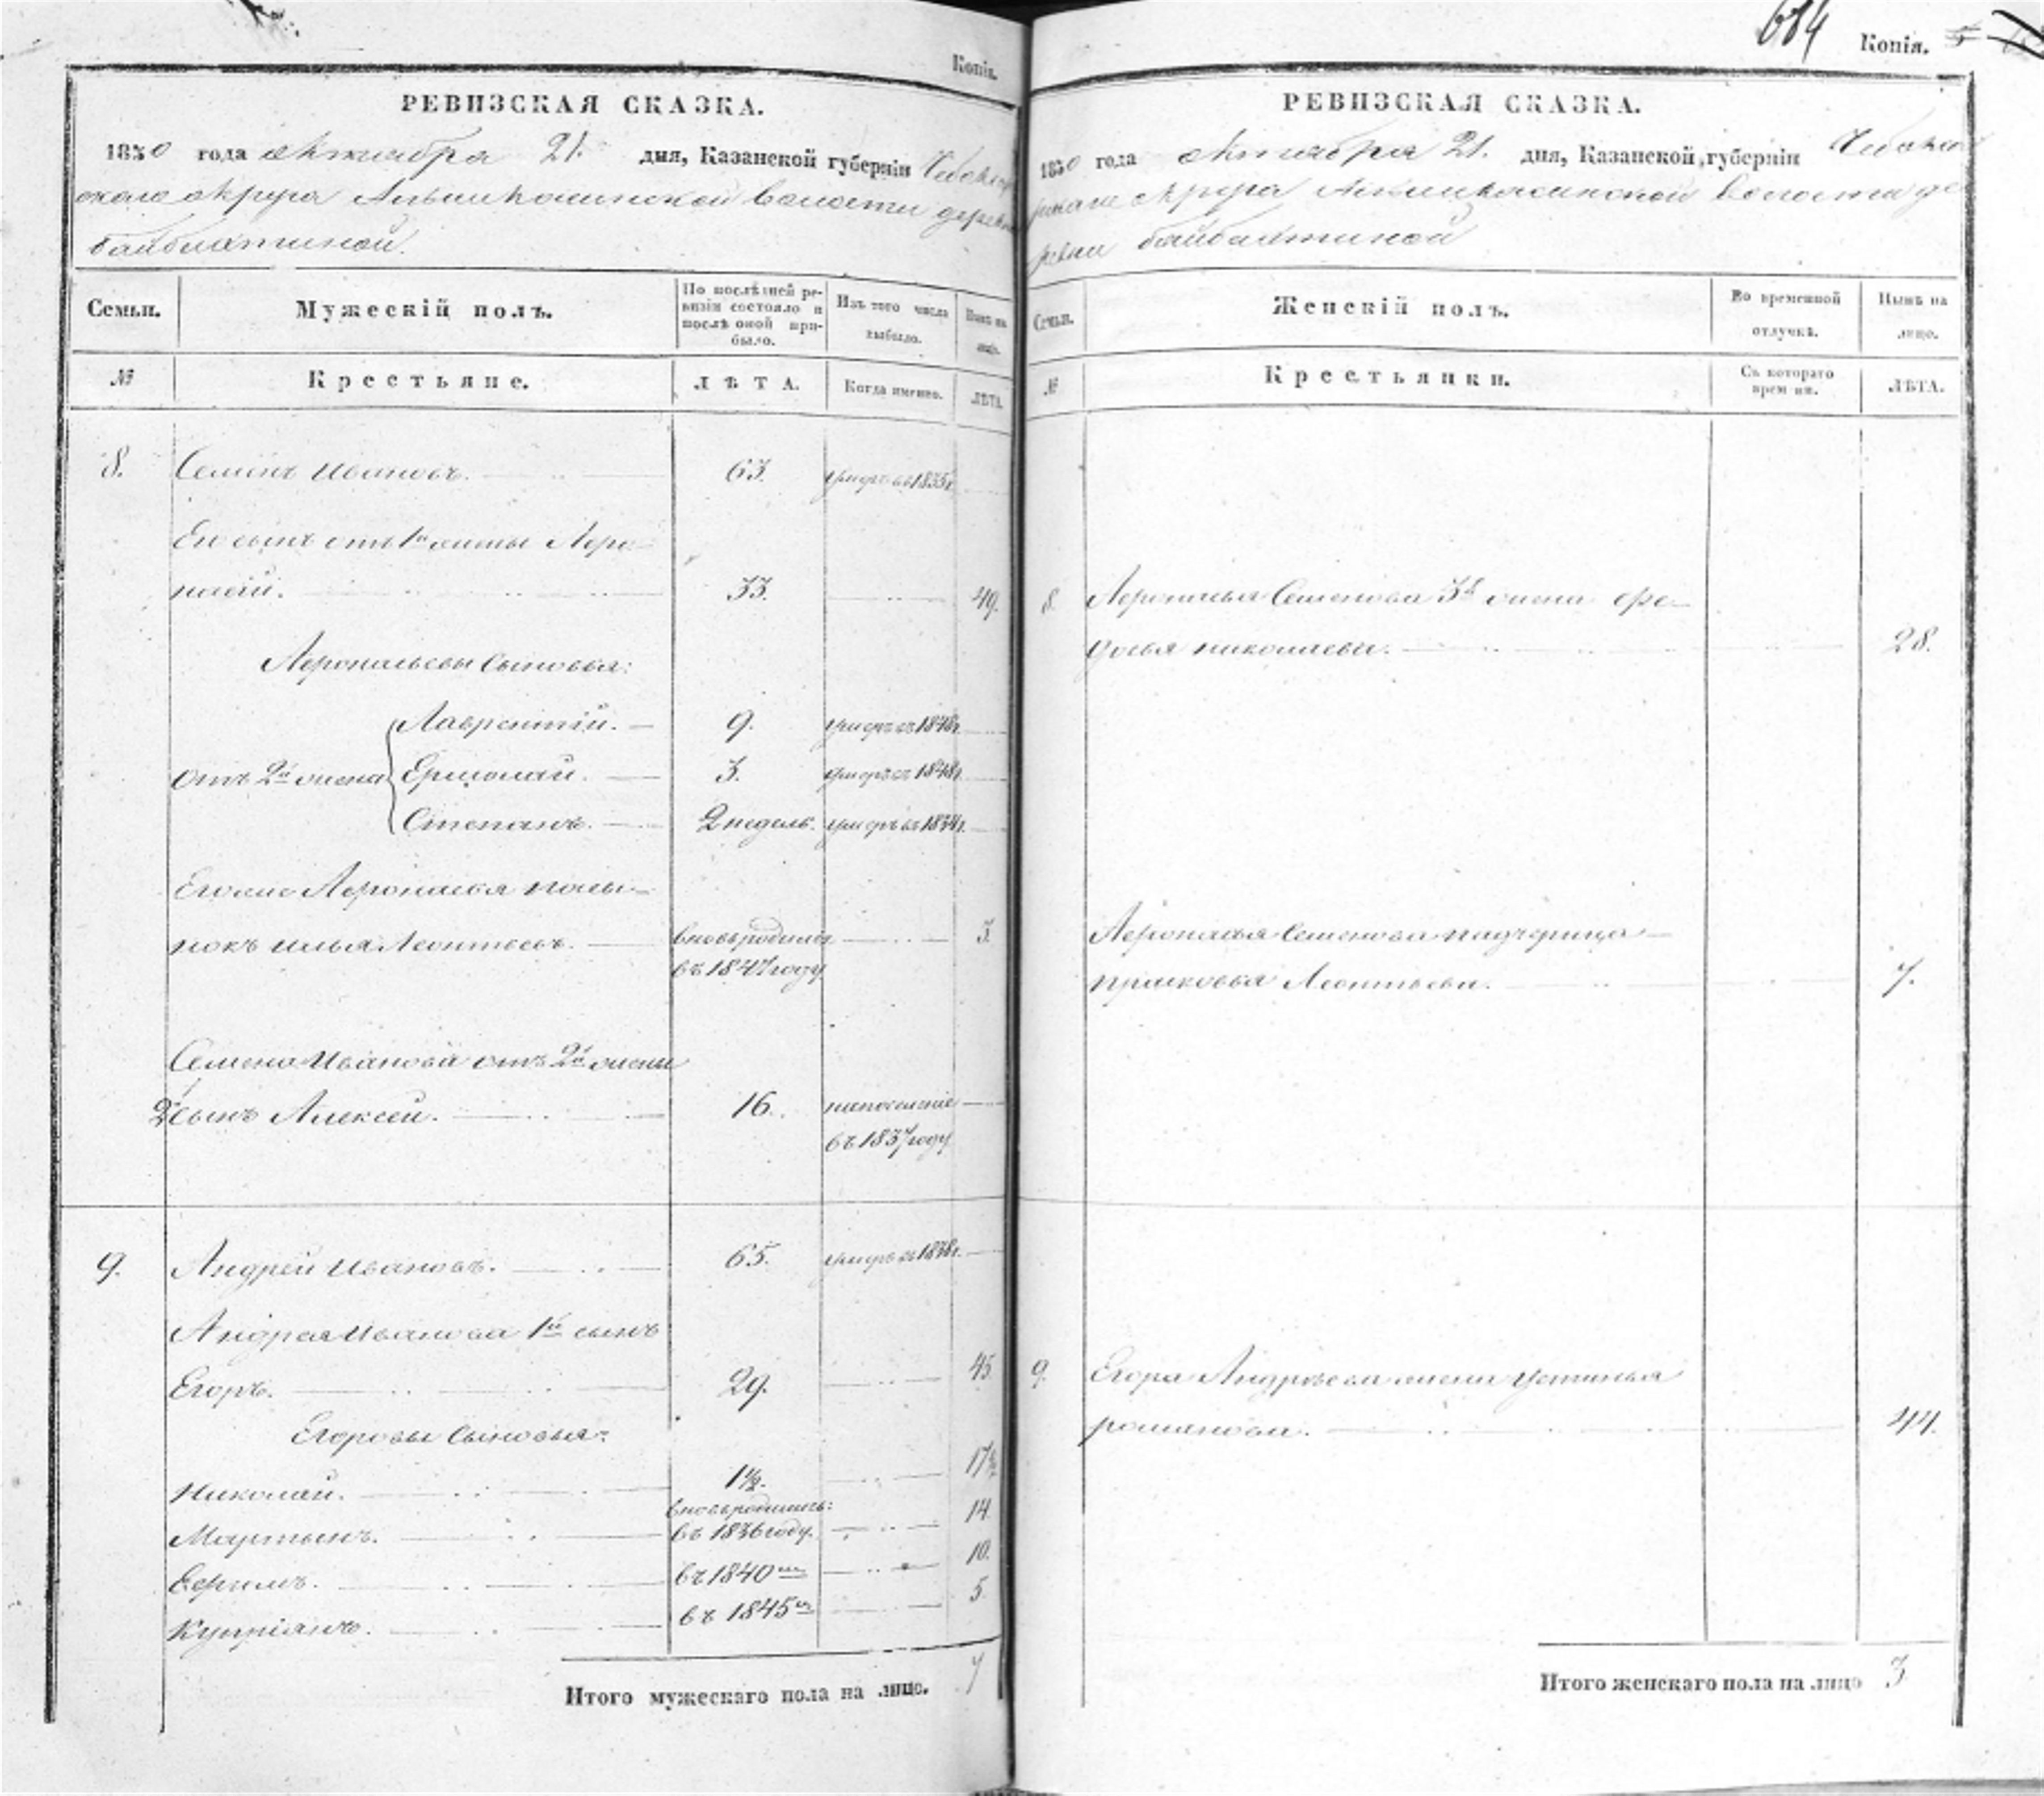 Копія.
РЕВИЗСКАЯ СКАЗКА.
1850 года октября 21. дня, Казанской губерніи Чебоксар
скаго округа волости деревни
байбахтиной.
Семьи.
Мужескій полъ.
По послѣдней ре-
визіи состояло и
послѣ оной при-
было.
Изъ того числа
выбыло.
Нынѣ на
лицо.
№
Крестьяне.
ЛѢТА.
Когда именно.
ЛѢТА.
8. Семенъ Ивановъ. 63. умеръ въ 1835г.
Его сынъ отъ 1й жены Аеро-
насій. 33. 49.
сыновья:
Лаврентій. 9. умеръ въ 1848г.
отъ 2й жены Ермолай. 3. умеръ въ 1848г.
Степанъ. 2 недель. умеръ въ 1834г.
Его же
нокъ Илья Леонтьевъ. вновь родился 3.
въ 1847 году
Семена Иванова отъ 2й жены
2й сынъ Алексей. 16. на поселеніе
въ 1837 году
9. Андрей Ивановъ. 65. умеръ въ 1838г.
Андрея Иванова 1й сынъ
Егоръ. 29. 45.
Егоровы сыновья:
Николай. 1½. 17½
вновь родились:
Мартынъ. въ 1836 году. 14.
Ефимъ. въ 1840м 10.
Купріянъ. въ 1845м 5.
Итого мужескаго пола на лицо. 7
684
Копія.
РЕВИЗСКАЯ СКАЗКА.
1850 года октября 21. дня, Казанской губерніи Чебокса
рскаго округа волости де
ревни байбахтиной
Семьи.
Женскій полъ.
Во временной
отлучкѣ.
Нынѣ на
лицо.
№
Крестьянки.
Съ котораго
времени.
ЛѢТА.
8. Семенова 3я жена Фе-
досья Николаева. 28.
Семенова падчерица
Прасковья Леонтьева. 7.
9. Егора Андреева жена Устинья
Романова. 44.
Итого женскаго пола на лицо 3